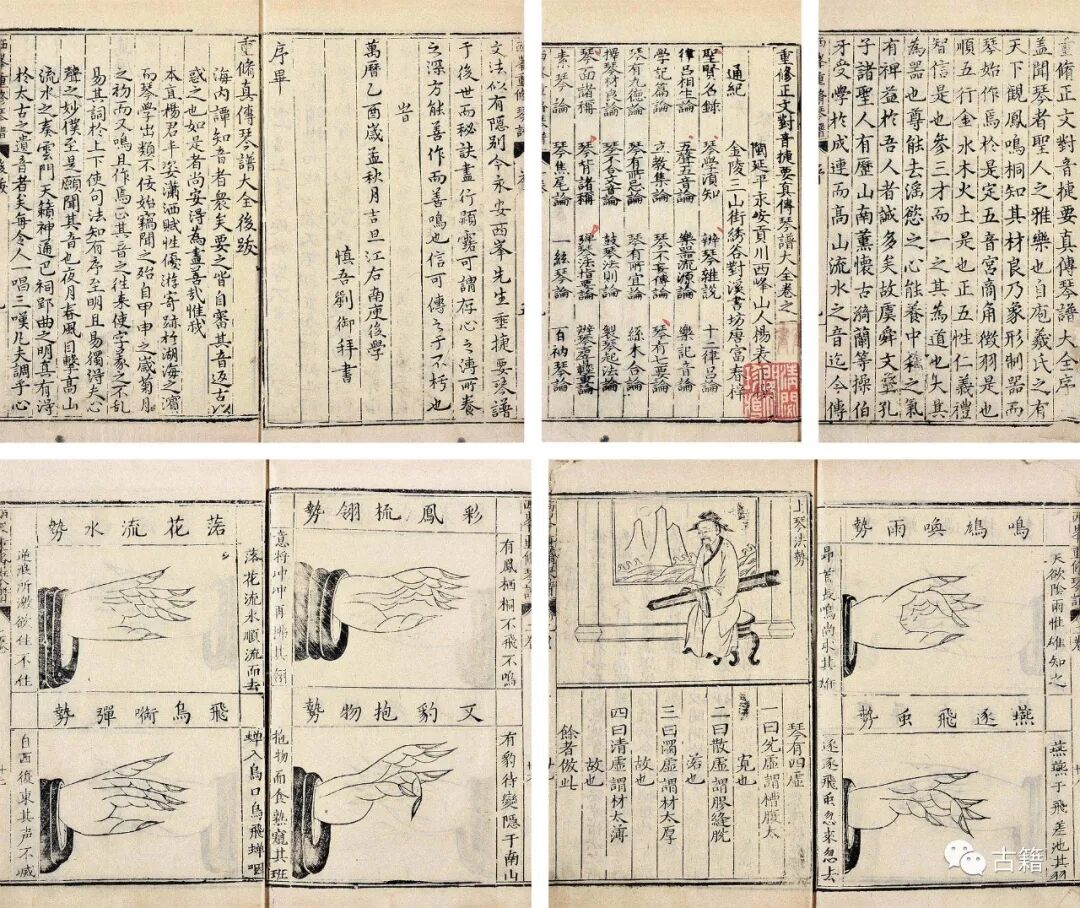 重脩正文對音捷要真傳琴譜大全序
蓋聞琴者聖人之雅樂也自庖羲氏之有
天下觀鳳鳴桐知其材良乃象形制器而
琴始作焉於是定五音宮商角徵羽是也
順五行金水木火土是也正五性仁義禮
智信是也參三才而一之其為道也大其
為器也尊能去滛慾之心能養中和之氣
有裨益於吾人者誠多矣故虞舜文王孔
子諸聖人有歷山南薰懷古漪蘭等操伯
牙受學於成連而高山流水之音迄今傳
重修正文對音捷要真傳琴譜大全卷之一
閩延平永安貢川西峰山人楊表正
金陵三山街綉谷對溪書坊唐富春梓
通紀
聖賢名錄
琴學須知
辨琴雜說
十二律呂論
律呂相生論
五聲五音論
樂器流源論
樂記音論
學記篇論
立教集論
琴不妄傳論
琴有正要論
琴有九德論
琴有所忌論
琴有所宜論
絲木合論
擇琴材良論
琴不合文章論
鼓琴法則論
製琴起法論
琴面諸稱
琴背諸稱
彈琴法指要論
素琴論
琴焦尾論
一絃琴論
百衲琴論
文法似有隱別今永安西峯先生垂捷要琴譜
于後世而秘訣盡行顯露可謂存心之溥所養
之深方能善作而善鳴也信可傳之于不朽也
旹
萬曆乙酉歲孟秋月吉旦江右南庾後學
慎吾劉御拜書
序畢
重脩真傳琴譜大全後跋
海内譚知音者衆矣要之皆自審其音返古以
惑之也如是者尚安得為盡善哉惟我
本直楊君丰姿瀟洒賦性優游寄跡於湖海之濱
而琴學出類不伎始竊聞之殆自甲申之歲菊月
之初而又鳴且作焉正其音之往來使字義之不乱
易其詞於上下使句法知有序至明且易獨得夫心
聲之妙僕至是願聞其音也夜月春風目擊高山
流水之奏雲門天籟神通已祠郢曲之明真有得
於太古之遺音者矣每令人一唱三嘆凡夫調乎心
鳴鳩喚雨勢
天欲陰雨惟雄知之
昂首長鳴尚求其雌
燕逐飛虫勢
燕燕于飛差池其羽
逐逐飛虫忽來忽去
上琴法勢
琴有四虛
一曰先虛謂槽腹太
寬也
二曰散虛謂膠縫脫
落也
三曰濁虛謂材太厚
故也
四曰清虛謂材太薄
故也
餘者倣此
彩鳳梳翎勢
有鳳栖桐不飛不鳴
意将冲冲再拂其翎
文豹抱物勢
有豹待變隱于南山
抱物而食熟窺其班
落花流水勢
落花流水順流而去
逆浪所激欲住不住
飛鳥啣蟬勢
蟬入鳥口鳥飛蟬咽
自西復東其声不㓕
古籍